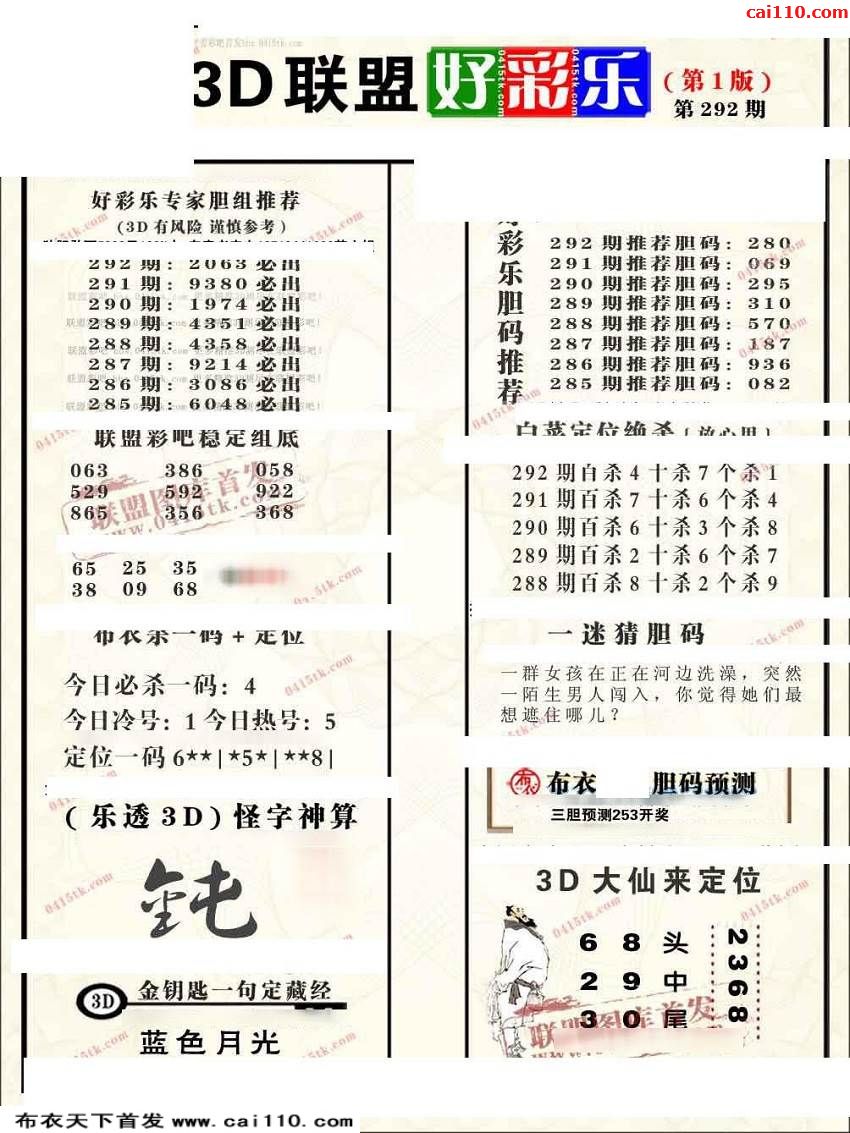 cai110.com
3D联盟 好彩乐 (第1版)
第292期
好彩乐专家胆组推荐
(3D有风险 谨慎参考)
292期:2063必出
291期:9380必出
290期:1974必出
289期:4351必出
288期:4358必出
287期:9214必出
286期:3086必出
285期:6048必出
联盟彩吧稳定组底
063 386 058
529 592 922
865 356 368
65 25 35
38 09 68
布衣杀一码+定位
今日必杀一码:4
今日冷号:1今日热号:5
定位一码6**|*5*|**8|
(乐透3D)怪字神算
钝
3D 金钥匙一句定藏经
蓝色月光
好彩乐胆码推荐
292期推荐胆码:280
291期推荐胆码:069
290期推荐胆码:295
289期推荐胆码:310
288期推荐胆码:570
287期推荐胆码:187
286期推荐胆码:936
285期推荐胆码:082
白菜定位绝杀(放心用)
292期百杀4十杀7个杀1
291期百杀7十杀6个杀4
290期百杀6十杀3个杀8
289期百杀2十杀6个杀7
288期百杀8十杀2个杀9
一迷猜胆码
一群女孩在正在河边洗澡,突然
一陌生男人闯入,你觉得她们最
想遮住哪儿?
布衣 胆码预测
三胆预测253开奖
3D大仙来定位
6 8 头
2 9 中
3 0 尾
2368
联盟图库首发
www.0415tk.com
布衣天下首发 www.cai110.com